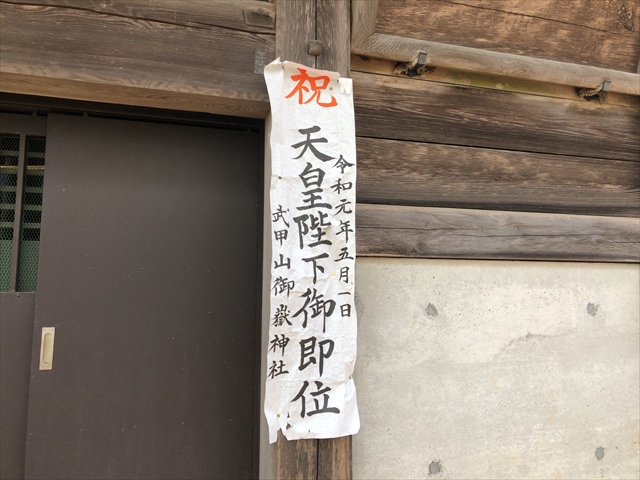 祝
令和元年五月一日
天皇陛下御即位
武甲山御嶽神社